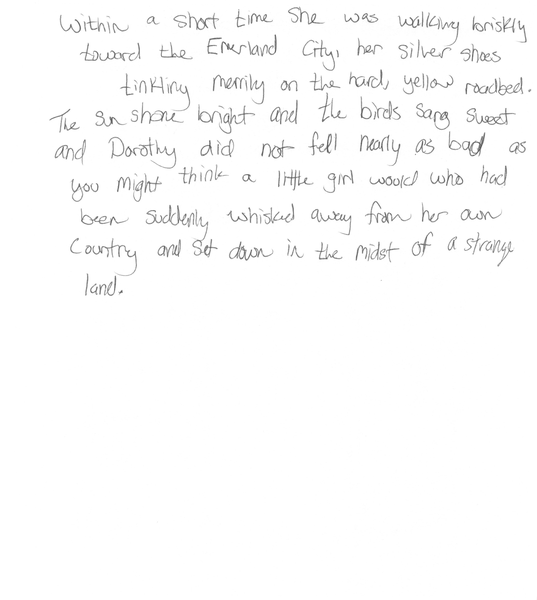 Within a short time she was walking briskly
toward the Emerland City, her silver shoes
tinkling merrily on the hard, yellow roadbed.
The sun shone bright and the birds sang sweet
and Dorothy did not fell nearly as bad as
you might think a little girl would who had
been suddenly whisked away from her own
country and set down in the midst of a strange
land.